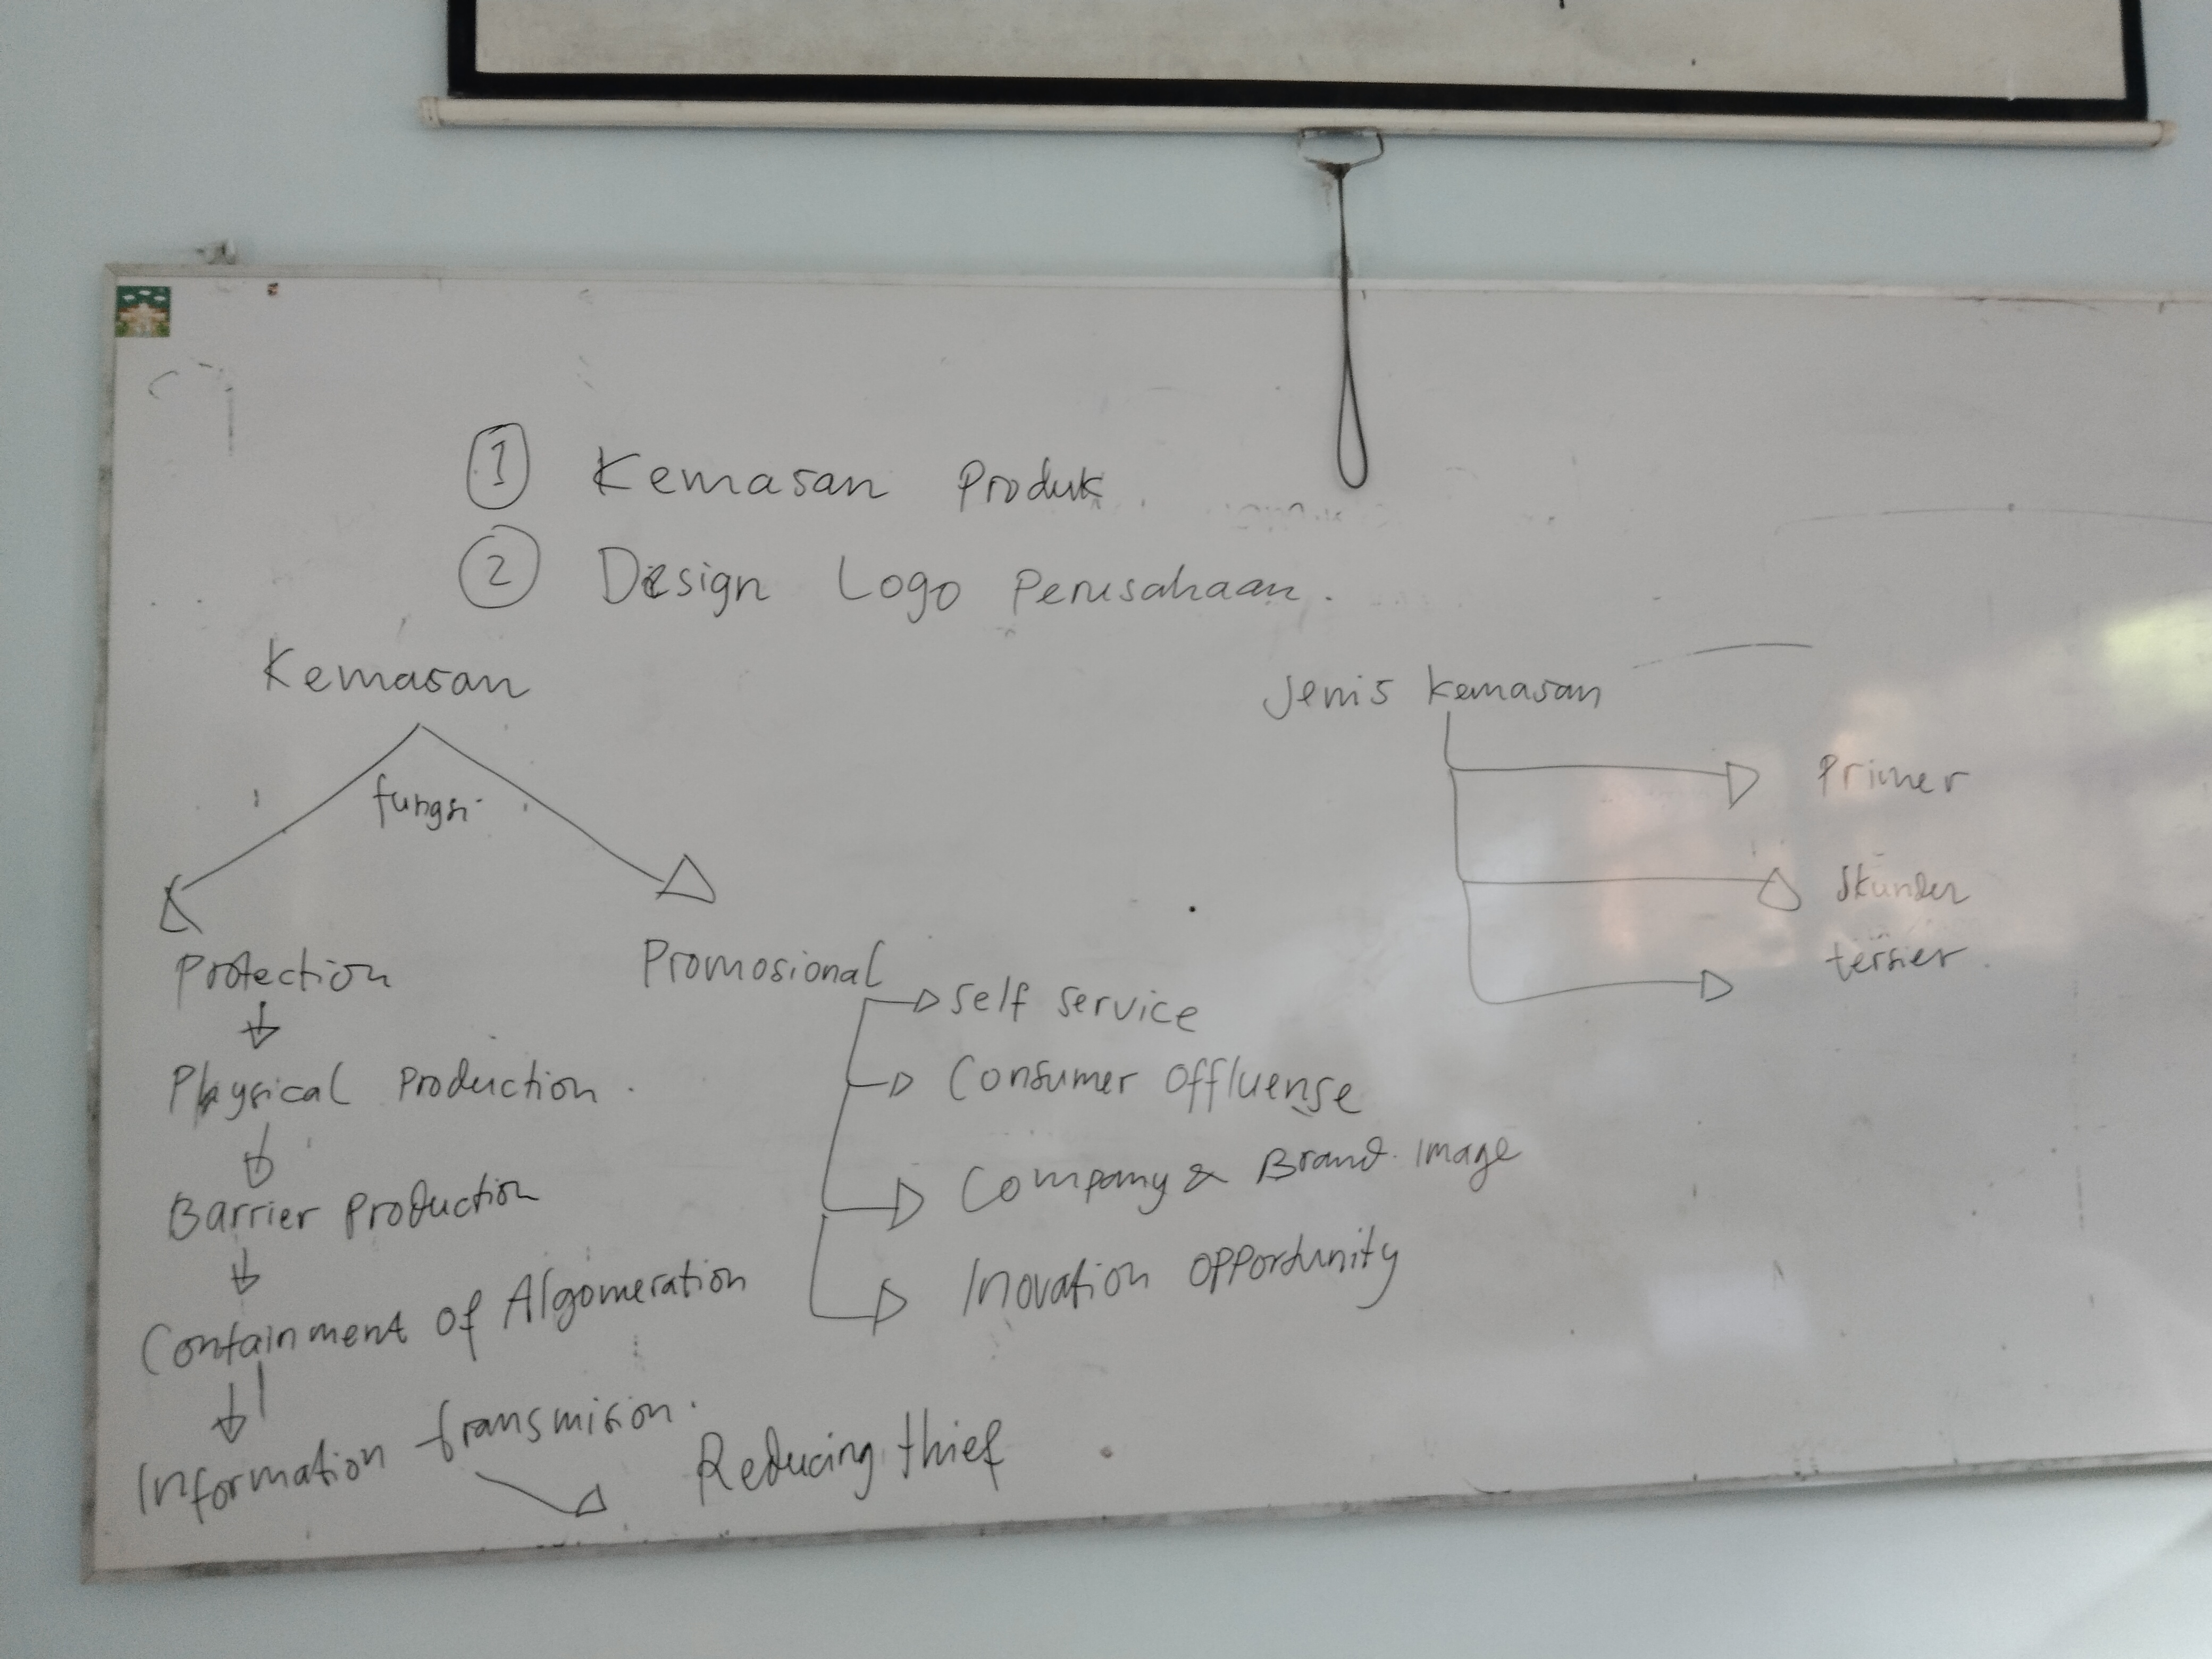 1 Kemasan Produk
2 Design Logo Perusahaan.
Kemasan
fungsi
Protection
Physical Production.
Barrier Production
Containment of Algomeration
Information transmision.
Reducing thief
Promosional
Self service
Consumer Offluense
Company & Brand Image
Inovation opportunity
Jenis kemasan
Primer
Skunder
tersier.